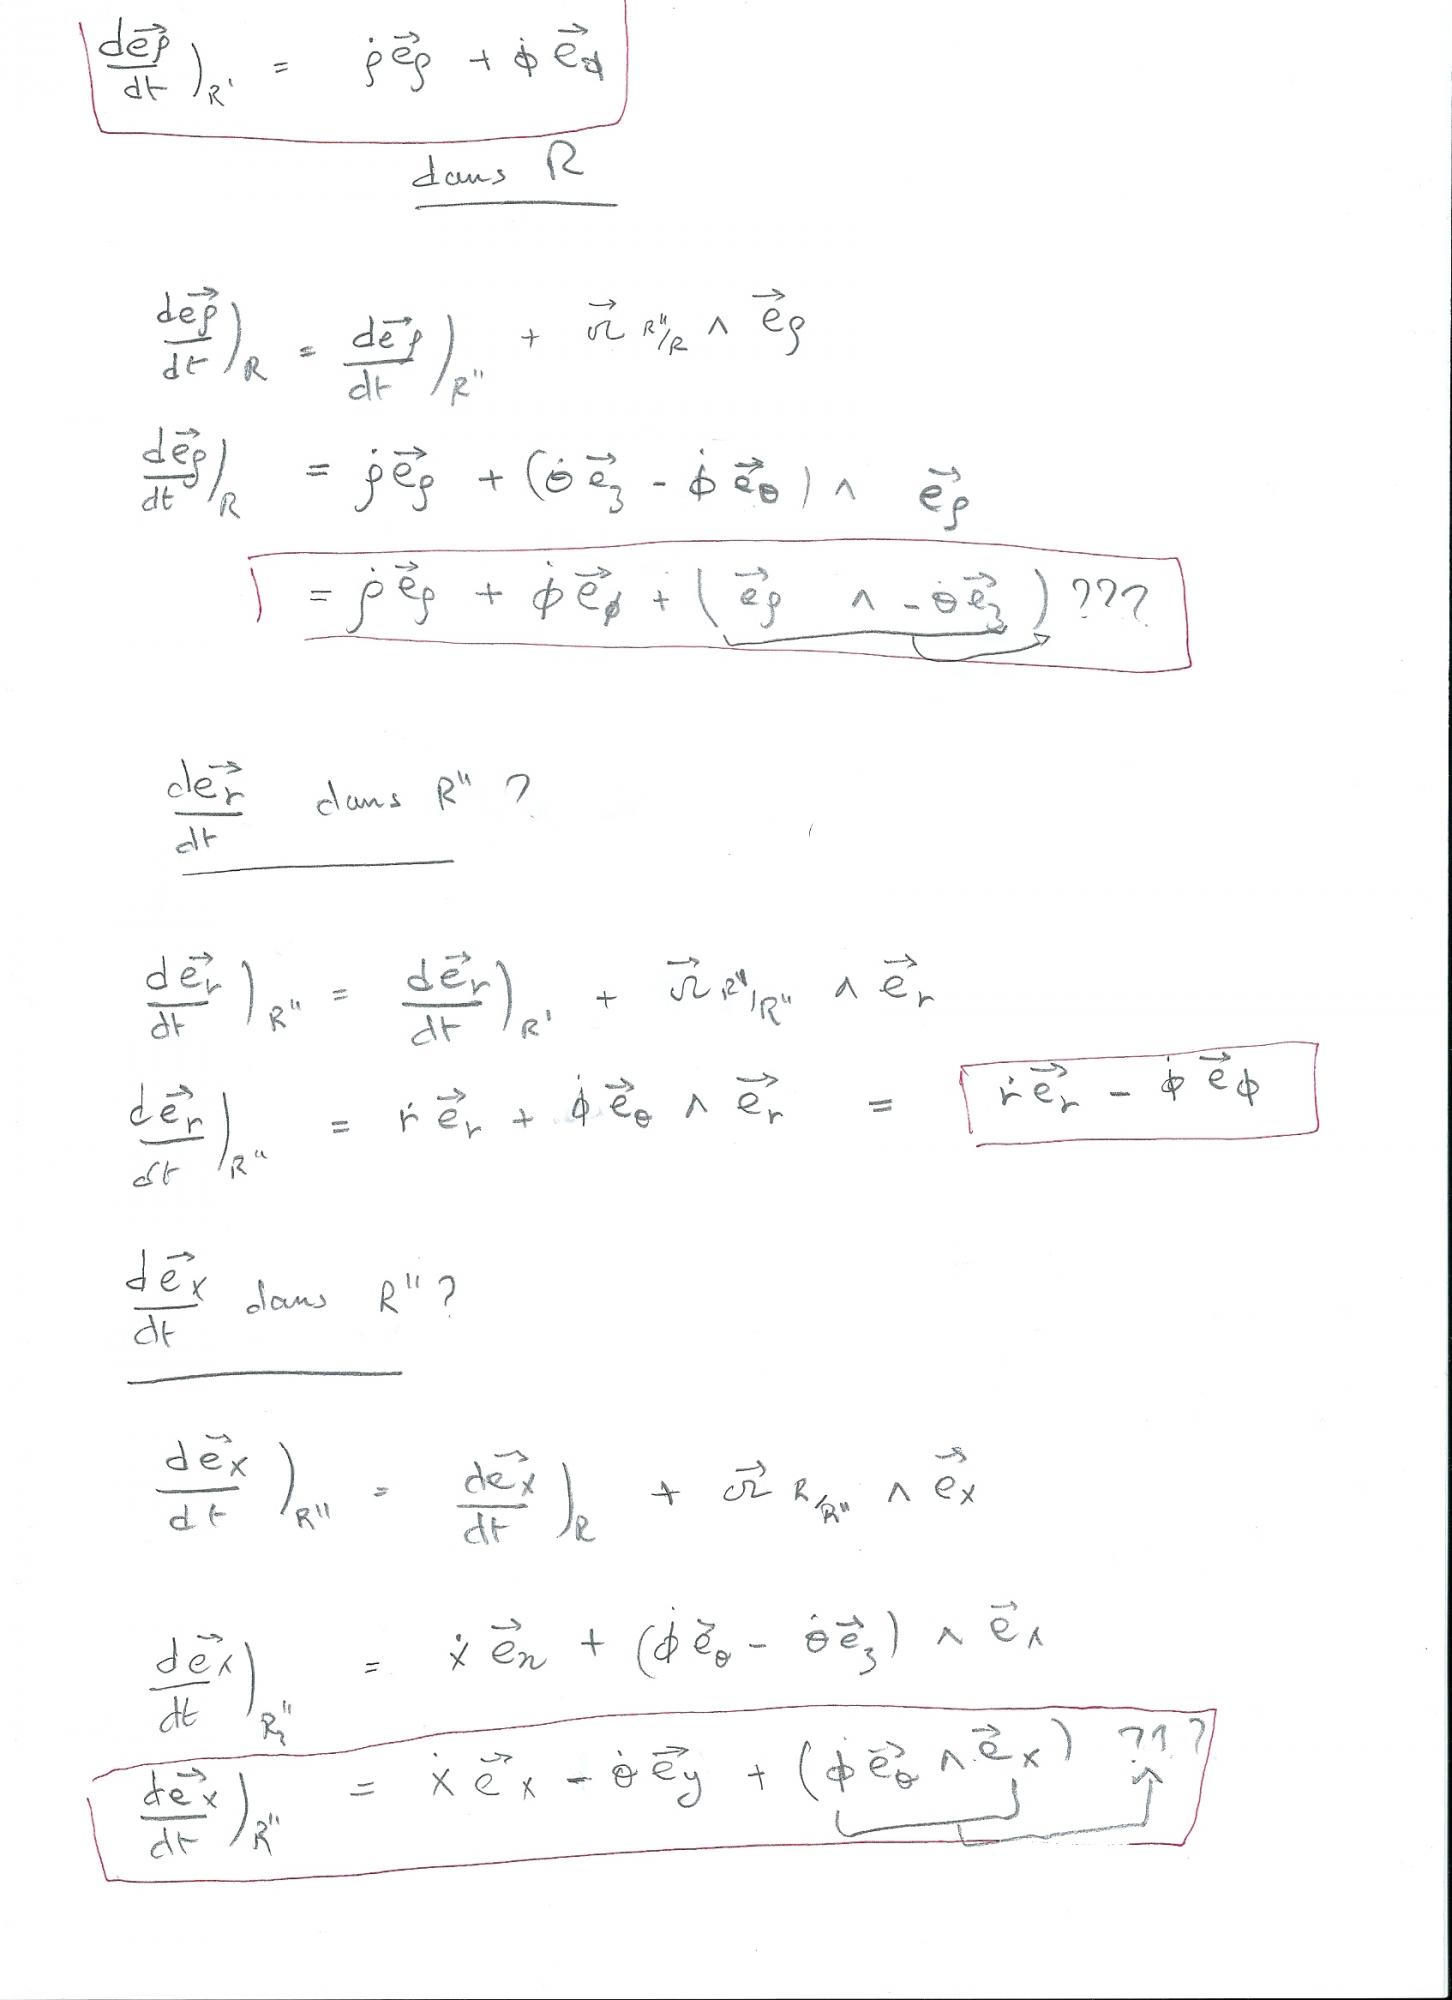 de⃗ρ/dt )R' = ρ̇ e⃗ρ + ϕ̇ e⃗ϕ
dans R
de⃗ρ/dt )R = de⃗ρ/dt )R" + Ω⃗ R"/R ∧ e⃗ρ
de⃗ρ/dt )R = ρ̇ e⃗ρ + (θ̇ e⃗z - ϕ̇ e⃗θ) ∧ e⃗ρ
= ρ̇ e⃗ρ + ϕ̇ e⃗ϕ + (e⃗ρ ∧ -θ̇ e⃗z) ???
de⃗r/dt dans R" ?
de⃗r/dt )R" = de⃗r/dt )R' + Ω⃗ R'/R" ∧ e⃗r
de⃗r/dt )R" = ṙ e⃗r + ϕ̇ e⃗θ ∧ e⃗r = ṙ e⃗r - ϕ̇ e⃗ϕ
de⃗x/dt dans R" ?
de⃗x/dt )R" = de⃗x/dt )R + Ω⃗ R/R" ∧ e⃗x
de⃗x/dt )R" = ẋ e⃗x + (ϕ̇ e⃗θ - θ̇ e⃗z) ∧ e⃗x
de⃗x/dt )R" = ẋ e⃗x - θ̇ e⃗y + (ϕ̇ e⃗θ ∧ e⃗x) ???